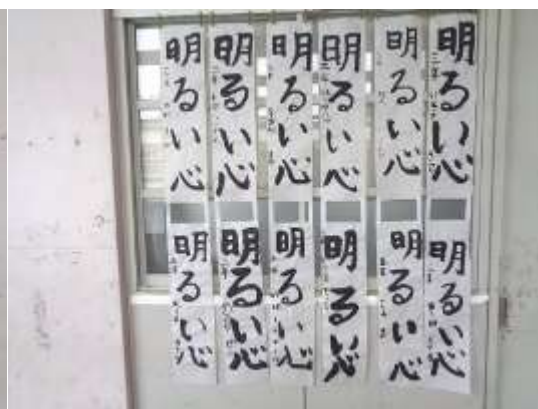 明るい心
明るい心
明るい心
明るい心
明るい心
明るい心
明るい心
明るい心
明るい心
明るい心
明るい心
明るい心